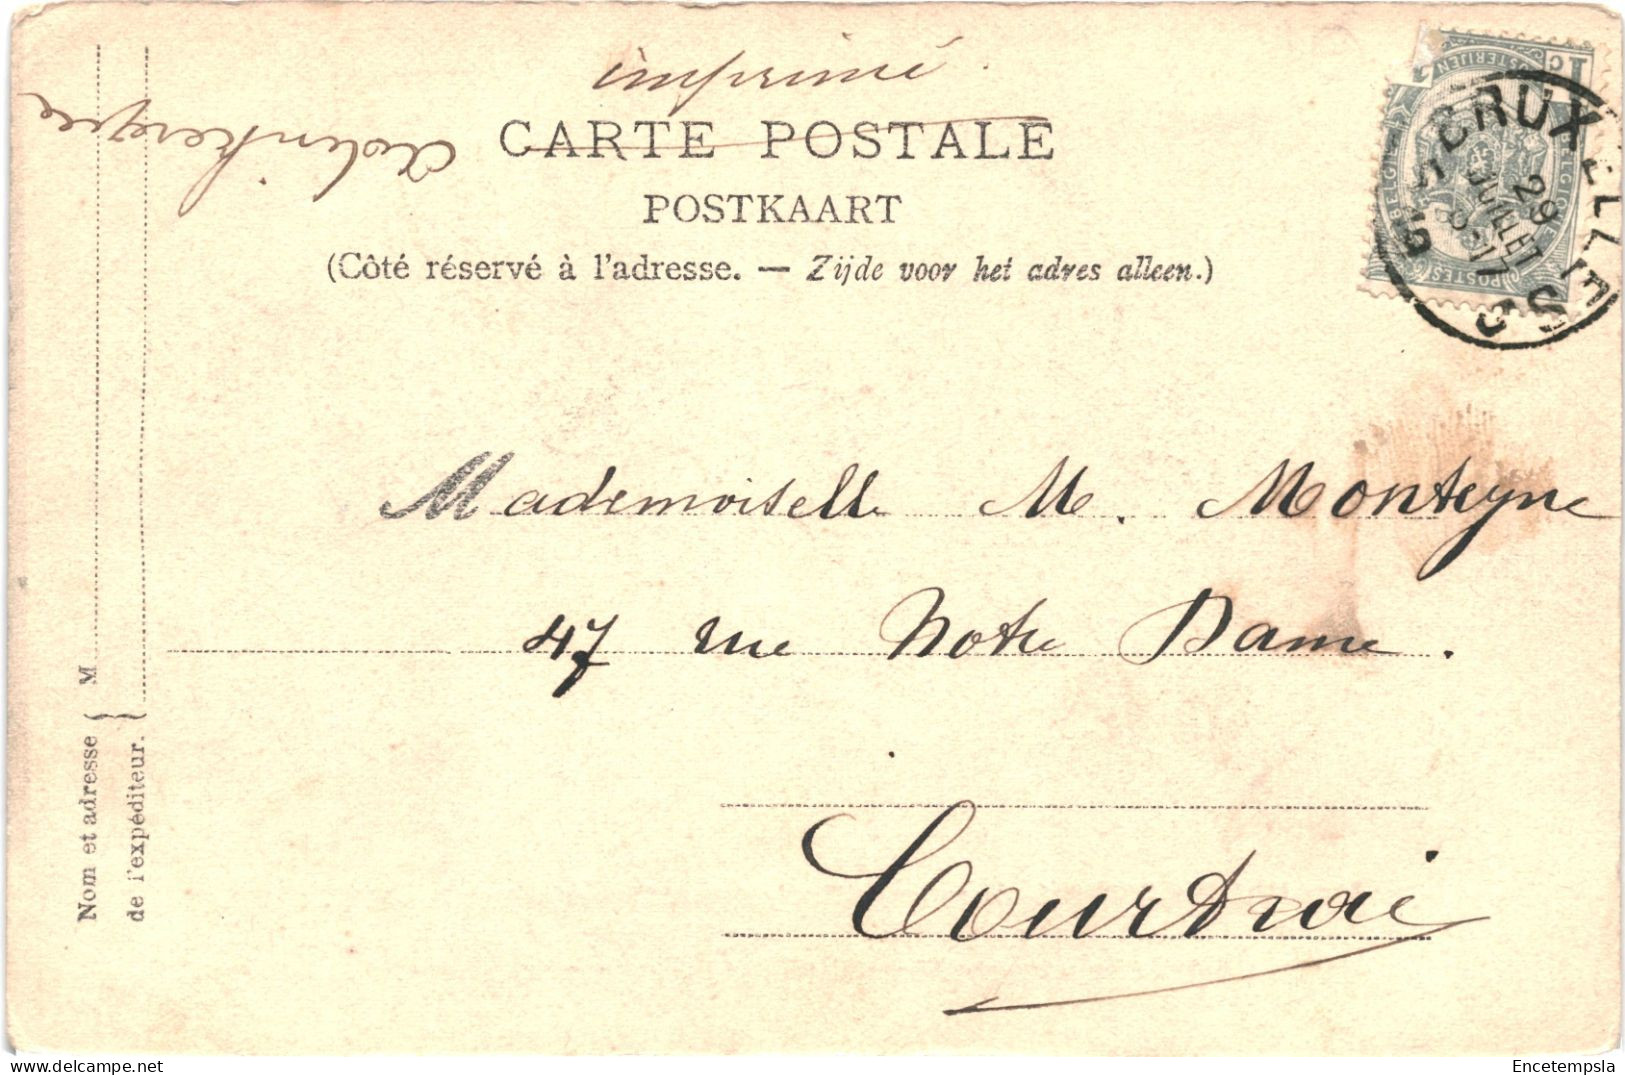 imprimé
CARTE POSTALE
POSTKAART
(Côté réservé à l'adresse. — Zijde voor het adres alleen.)
BRUXELLES
29
JUILLET
8-17
1C
POSTERIJEN
BELGIQUE
POSTES
BELGIË
Mademoiselle M. Monteyne
47 rue Notre Dame.
Courtrai
Nom et adresse { M
de l'expéditeur. }
Encetempsla